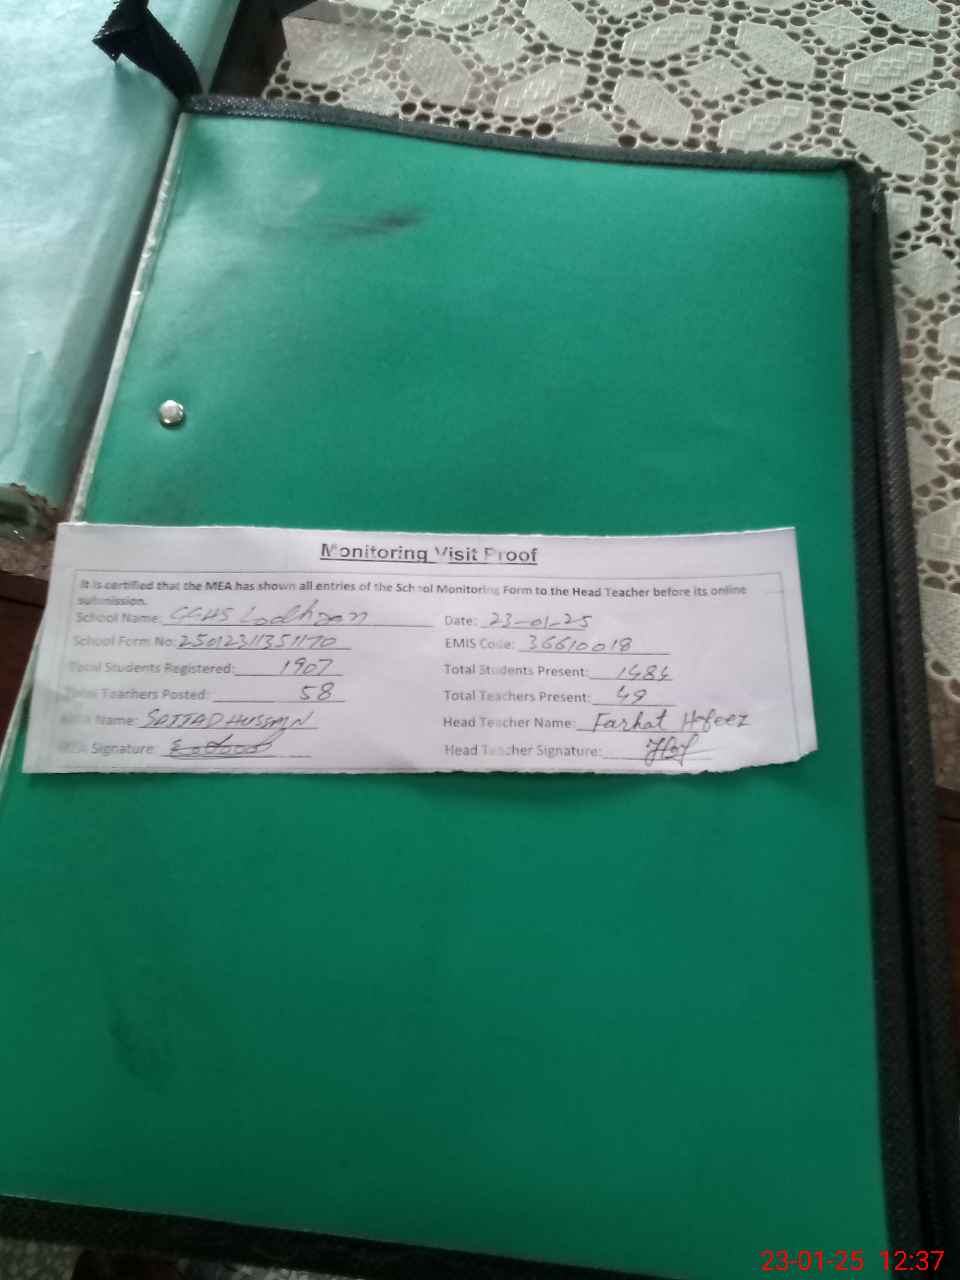 Monitoring Visit Proof
It is certified that the MEA has shown all entries of the School Monitoring Form to the Head Teacher before its online
submission.
School Name: GGHS Lodhran Date: 23-01-25
School Form No: 25012311351170 EMIS Code: 36610018
Total Students Registered: 1907 Total Students Present: 1484
Total Teachers Posted: 58 Total Teachers Present: 49
MEA Name: SAJJAD HUSSAIN Head Teacher Name: Farhat Hafeez
MEA Signature: Head Teacher Signature:
23-01-25 12:37